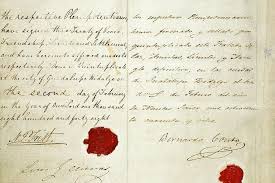 the respective Plenipotentiaries
have signed this Treaty of Peace,
Friendship, Limits and Settlement,
and have hereunto affixed our seals
respectively. Done in Quintuplicate
at the city of Guadalupe Hidalgo on
the second day of February
in the year of
eight hundred and forty eight
N. P. Trist
Luis G. Cuevas
los respectivos Plenipotenciarios
hemos firmado y sellado por
quintuplicado este Tratado de
Amistad, Limites y
definitivo, en la ciudad de
Guadalupe Hidalgo el dia
dos de Febrero del año
de Nuestro Señor mil
cuarenta y ocho
Bernardo Couto